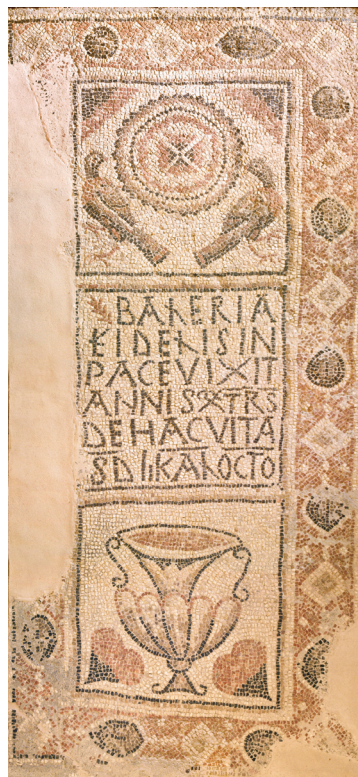 BALERIA
FIDELIS IN
PACE VIXIT
ANNIS
DE HAC VITA
S D II KAL OCTO